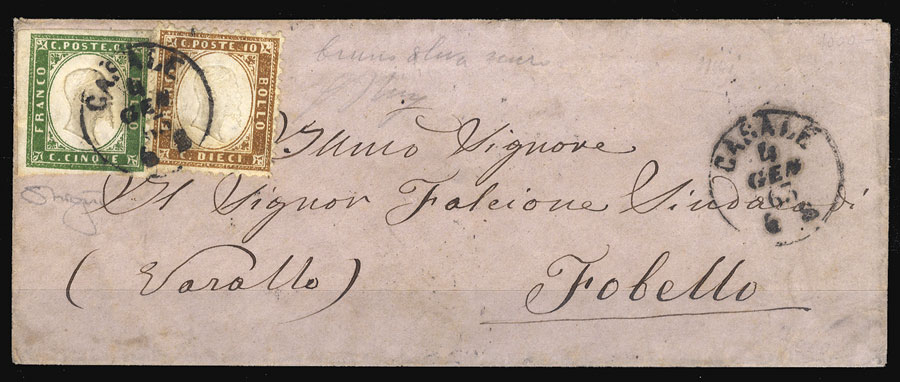 C. POSTE. 
FRANCO
C. CINQUE
C. POSTE. 10
BOLLO
C. DIECI
CASALE
4
GEN
6 S
bruno oliva scuro
Illmo Signore
Il Signor Falcione Sindaco di
(Varallo) Fobello
CASALE
4
GEN
63
6 S